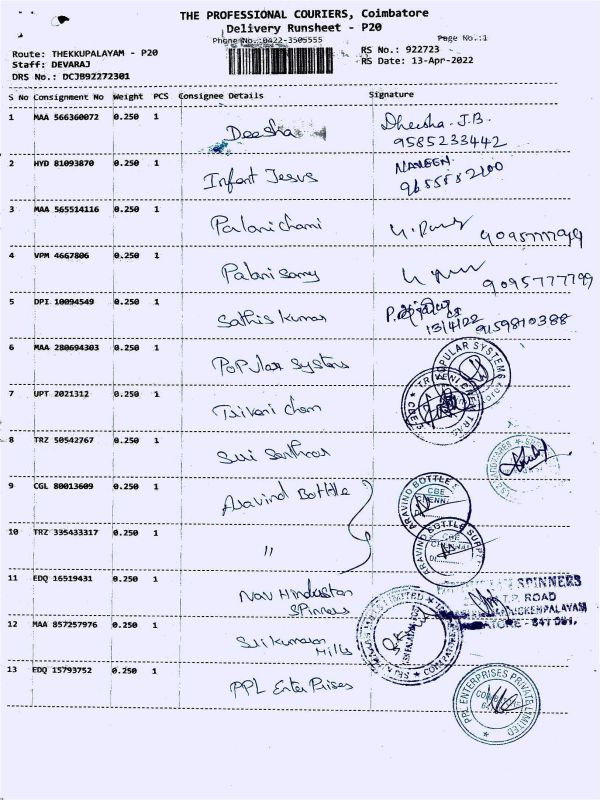 THE PROFESSIONAL COURIERS, Coimbatore
Delivery Runsheet - P20
Phone No.:0422-3505555
Page No.:1
Route: THEKKUPALAYAM - P20
RS No.: 922723
Staff: DEVARAJ
RS Date: 13-Apr-2022
DRS No.: DCJB92272301
S No Consignment No Weight PCS Consignee Details Signature
1 MAA 566360072 0.250 1 Deesha Dheesha.J.B.
9585233442
2 HYD 81093870 0.250 1 Infant Jesus NAVEEN
3 MAA 565514116 0.250 1 Palanichami
4 VPM 4667806 0.250 1 Palanisamy 9095777799
5 DPI 10094549 0.250 1 Sathis kumar
13/4/22 9159810388
6 MAA 280694303 0.250 1 PoPular Systems POPULAR SYSTEMS
7 UPT 2021312 0.250 1 Triveni Chem
8 TRZ 50542767 0.250 1
9 CGL 80013609 0.250 1 Aravind Botttle ARAVIND BOTTLE
10 TRZ 335433317 0.250 1 " ARAVIND BOTTLE
11 EDQ 16519431 0.250 1 Nav Hindustan
SPinners
SPINNERS
T.P. ROAD
12 MAA 857257976 0.250 1 Sri Kumaran
Mills
COIMBATORE
13 EDQ 15793752 0.250 1 PPL EnterPrises PPL ENTERPRISES PRIVATE LIMITED